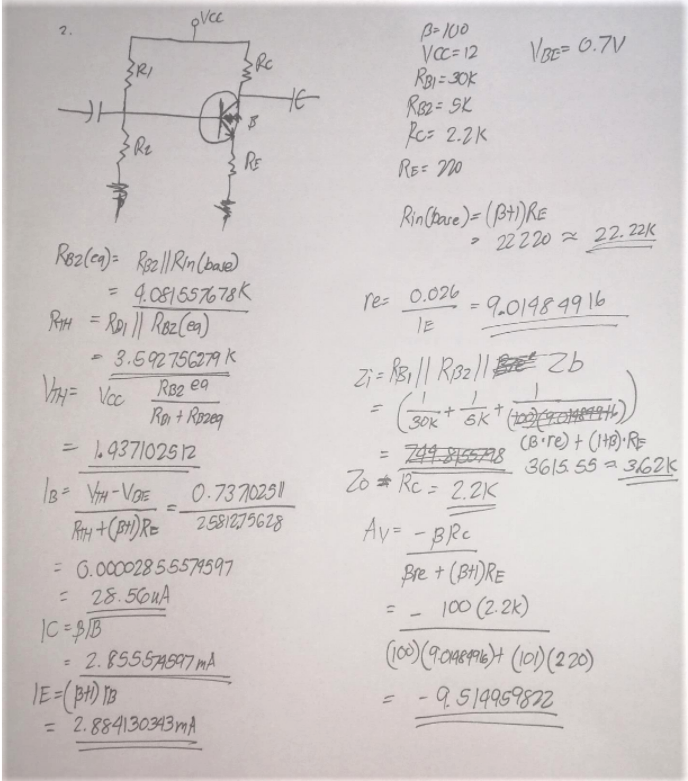 2.
VCC
R1
RC
R2
B
RE
β=100
VCC=12
RB1=30K
RB2=5K
RC=2.2K
RE=220
VBE=0.7V
Rin(base)=(β+1)RE
= 22220 ≈ 22.22K
RB2(eq)= RB2||Rin(base)
= 4.081557678K
RTH = RB1||RB2(eq)
= 3.592756279K
VTH= VCC RB2 eq / RB1+RB2eq
= 1.937102512
IB= VTH-VBE / RTH+(β+1)RE = 0.73702511 / 25812.75628
= 0.00002855574597
= 28.56uA
IC=βIB
= 2.855574597mA
IE=(β+1)IB
= 2.884130343mA
re= 0.026 / IE = 9.01484916
Zi=RB1||RB2|| Zb
= (1/30K + 1/5K + 1/(100)(9.01484916))
(β·re)+(1+β)·RE
= 3615.55 ≈ 3.62K
Zo = RC = 2.2K
AV= -βRC / βre+(β+1)RE
= - 100(2.2K) / (100)(9.01484916)+(101)(220)
= -9.514959822